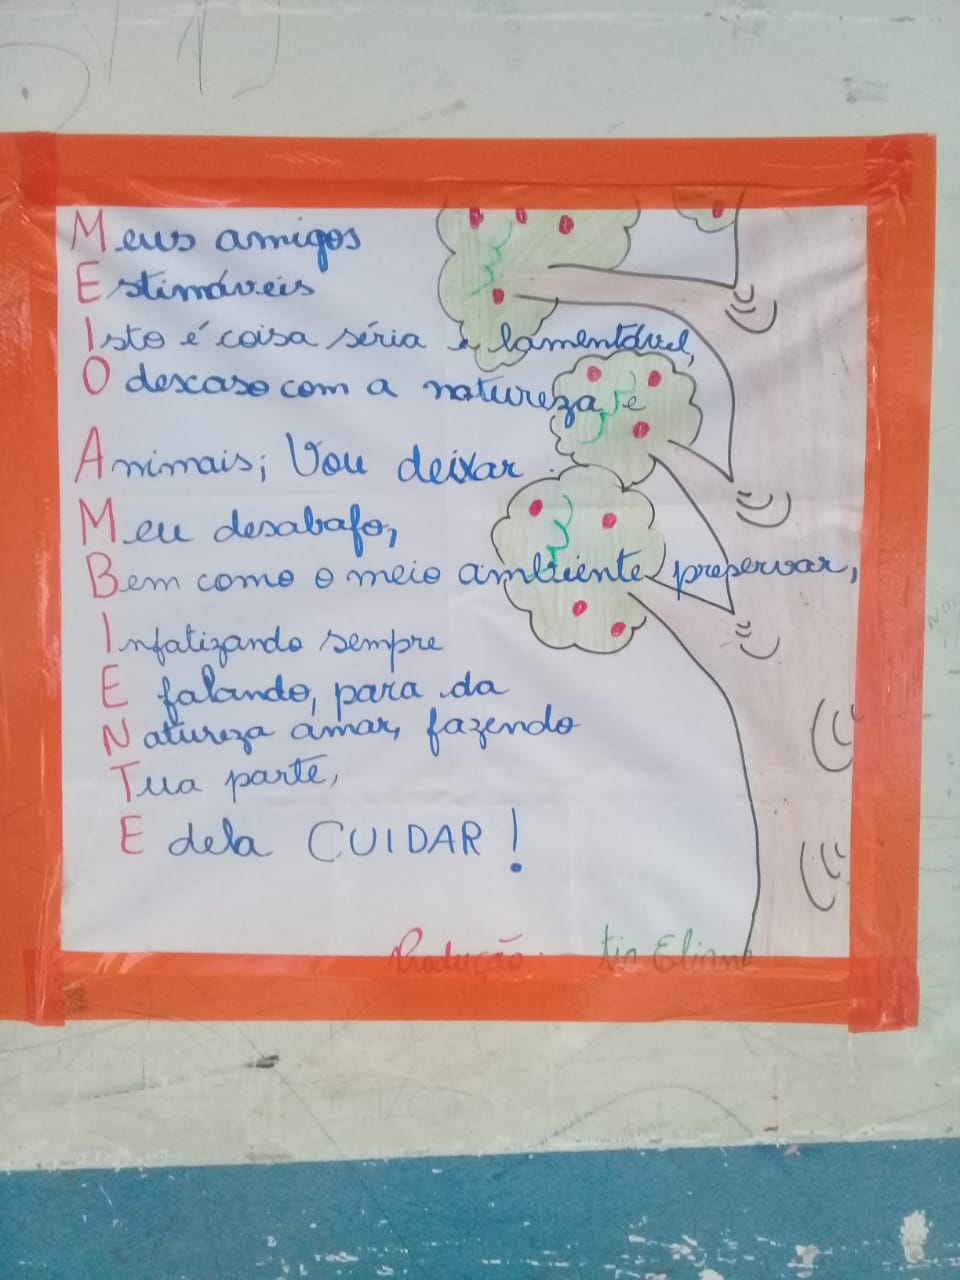 Meus amigos
Estimáveis
Isto é coisa séria e lamentável,
O descaso com a natureza e
Animais; Vou deixar
Meu desabafo,
Bem como o meio ambiente preservar,
Infatizando sempre
E falando, para da
Natureza amar, fazendo
Tua parte,
E dela CUIDAR!
Produção: tia Eliane